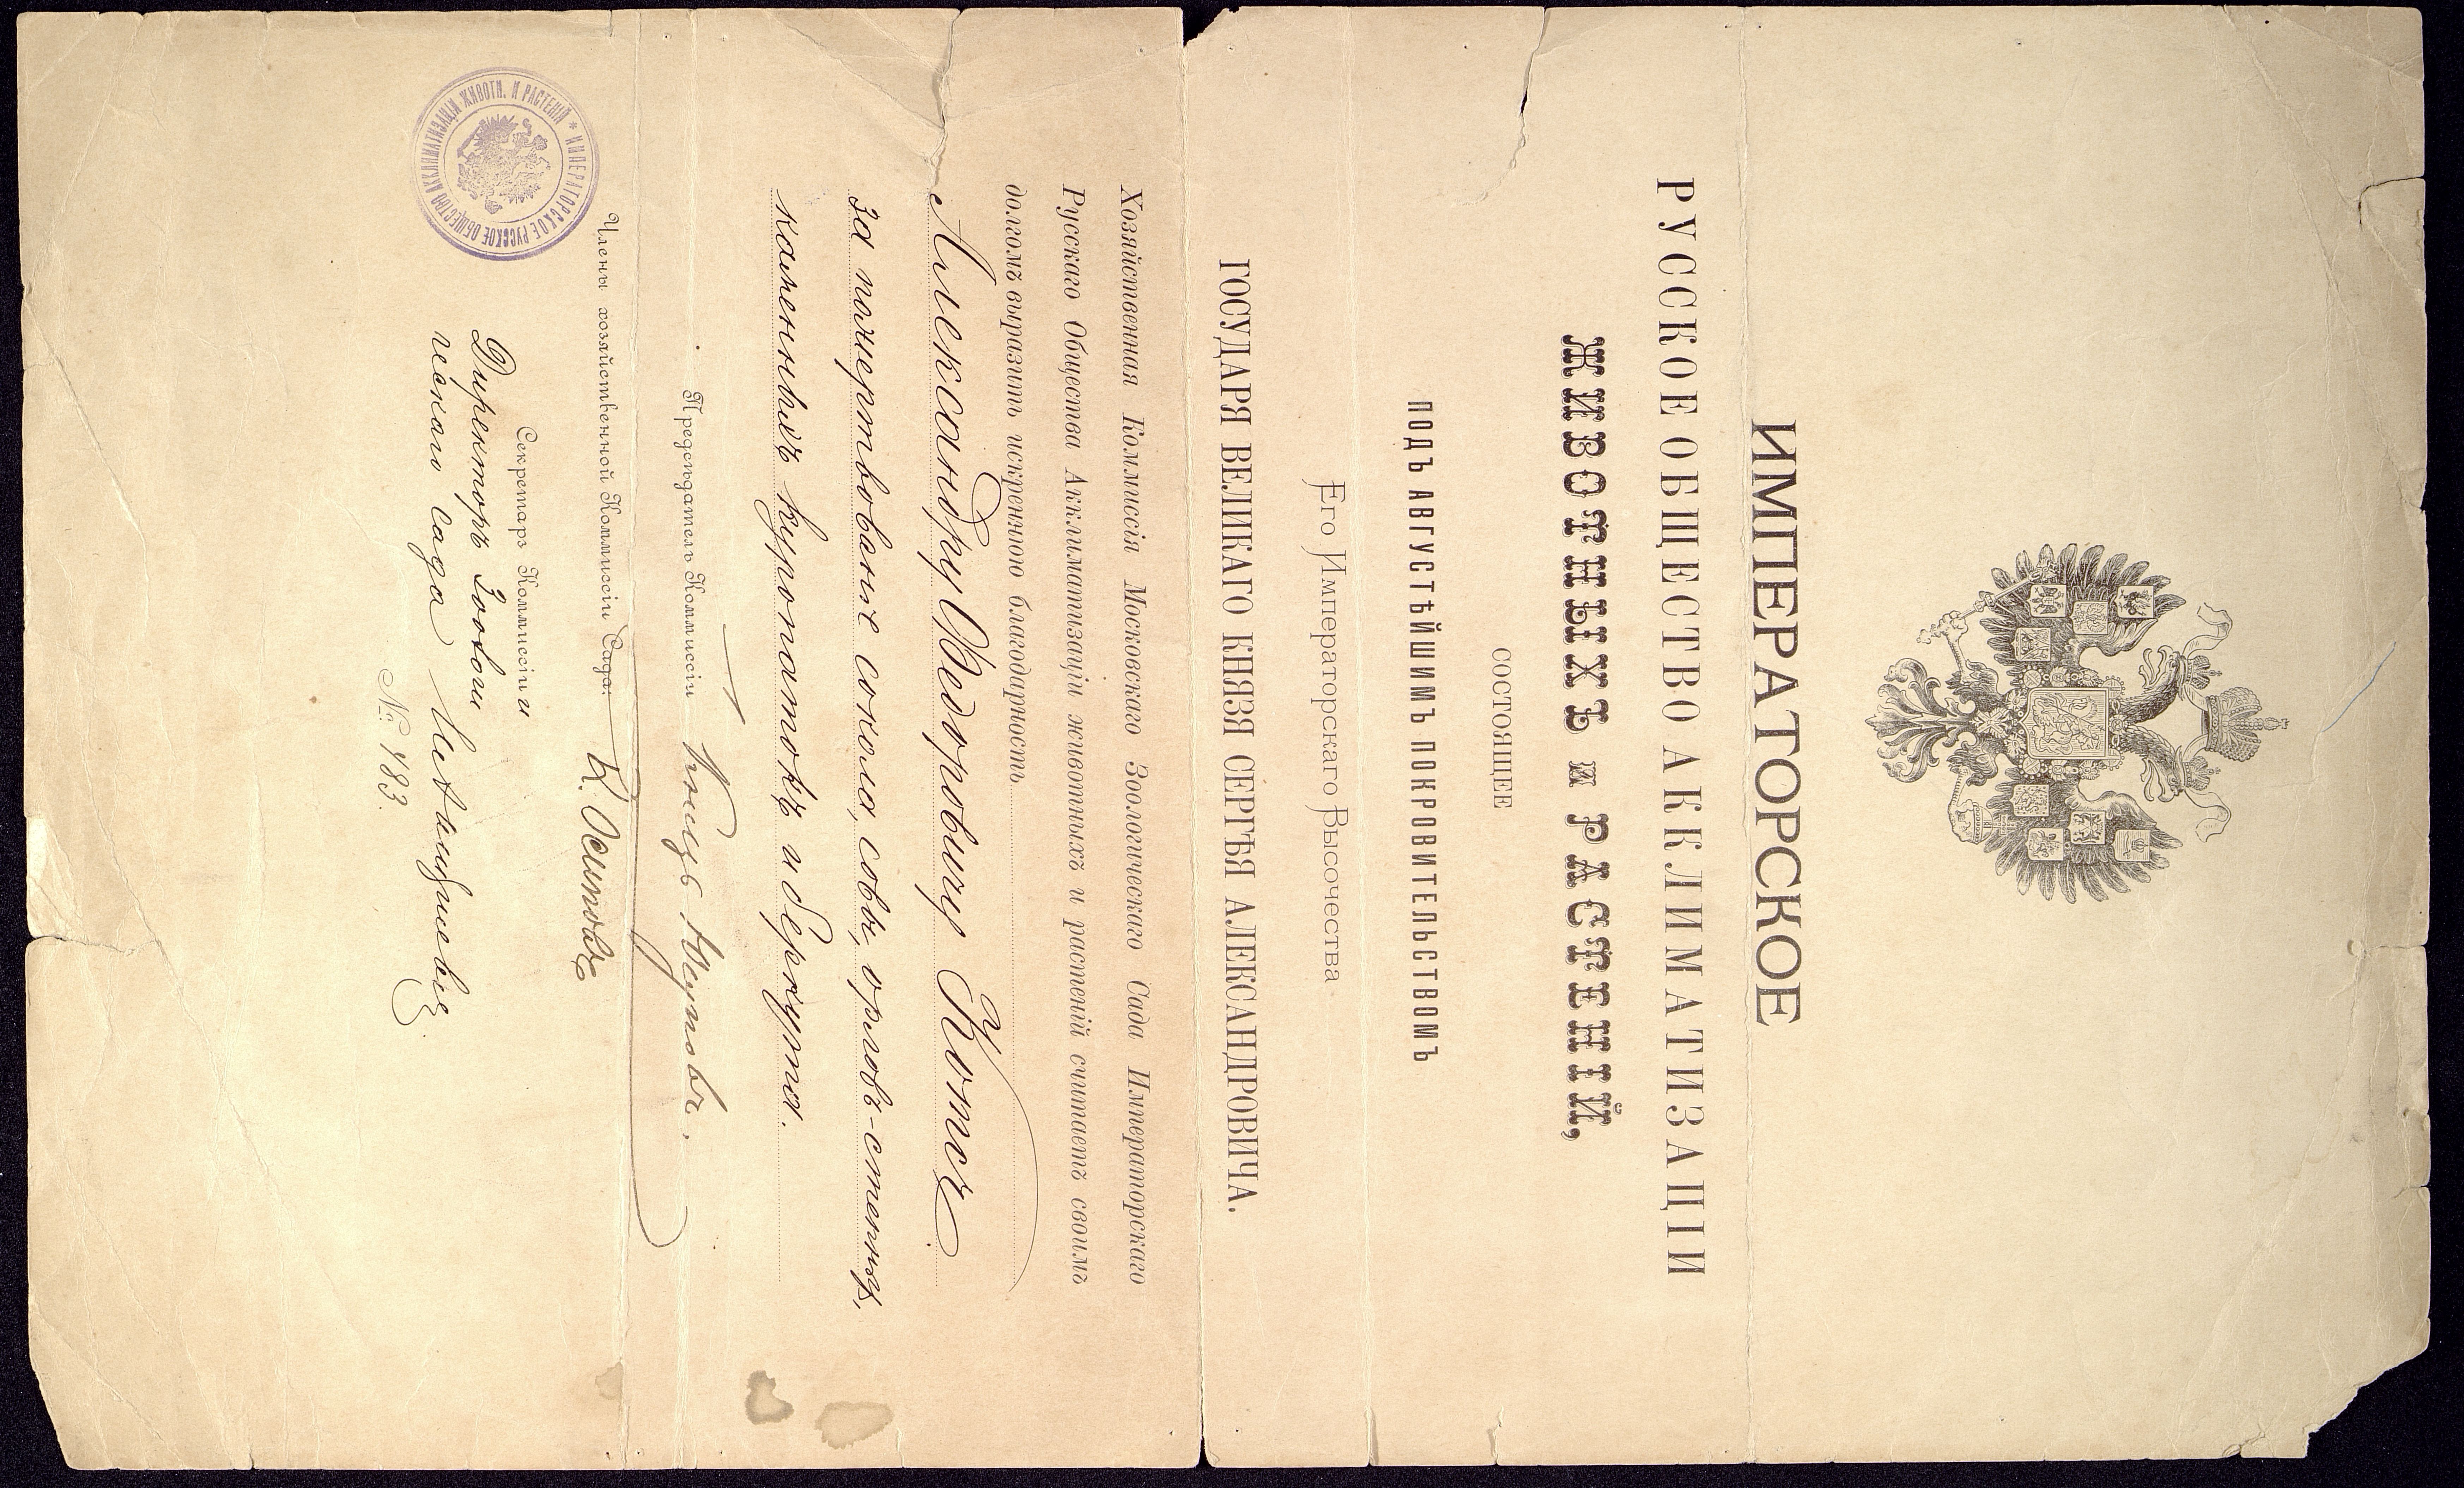 ИМПЕРАТОРСКОЕ
РУССКОЕ ОБЩЕСТВО АККЛИМАТИЗАЦІИ
ЖИВОТНЫХЪ и РАСТЕНІЙ,
СОСТОЯЩЕЕ
ПОДЪ АВГУСТѢЙШИМЪ ПОКРОВИТЕЛЬСТВОМЪ
Его Императорскаго Высочества
ГОСУДАРЯ ВЕЛИКАГО КНЯЗЯ СЕРГѢЯ АЛЕКСАНДРОВИЧА.
Хозяйственная Коммиссія Московскаго Зоологическаго Сада Императорскаго
Русскаго Общества Акклиматизаціи животныхъ и растеній считаетъ своимъ
долгомъ выразить искреннюю благодарность
Александру Ѳедоровичу Котсъ
за пожертвованіе сокола, совы, орловъ-степныхъ,
каменныхъ куропатокъ и беркута.
Предсѣдатель Коммиссіи
Члены хозяйственной Коммиссіи Сада: К. Осиповъ
Секретарь Коммиссіи и
Директоръ Зоологи
ческаго сада
№ 183.
ИМПЕРАТОРСКОЕ РУССКОЕ ОБЩЕСТВО АККЛИМАТИЗАЦІИ ЖИВОТН. И РАСТЕНІЙ *